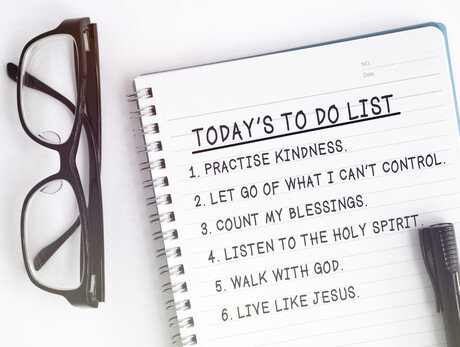 NO.
Date
TODAY'S TO DO LIST
1. PRACTISE KINDNESS.
2. LET GO OF WHAT I CAN'T CONTROL.
3. COUNT MY BLESSINGS.
4. LISTEN TO THE HOLY SPIRIT.
5. WALK WITH GOD.
6. LIVE LIKE JESUS.